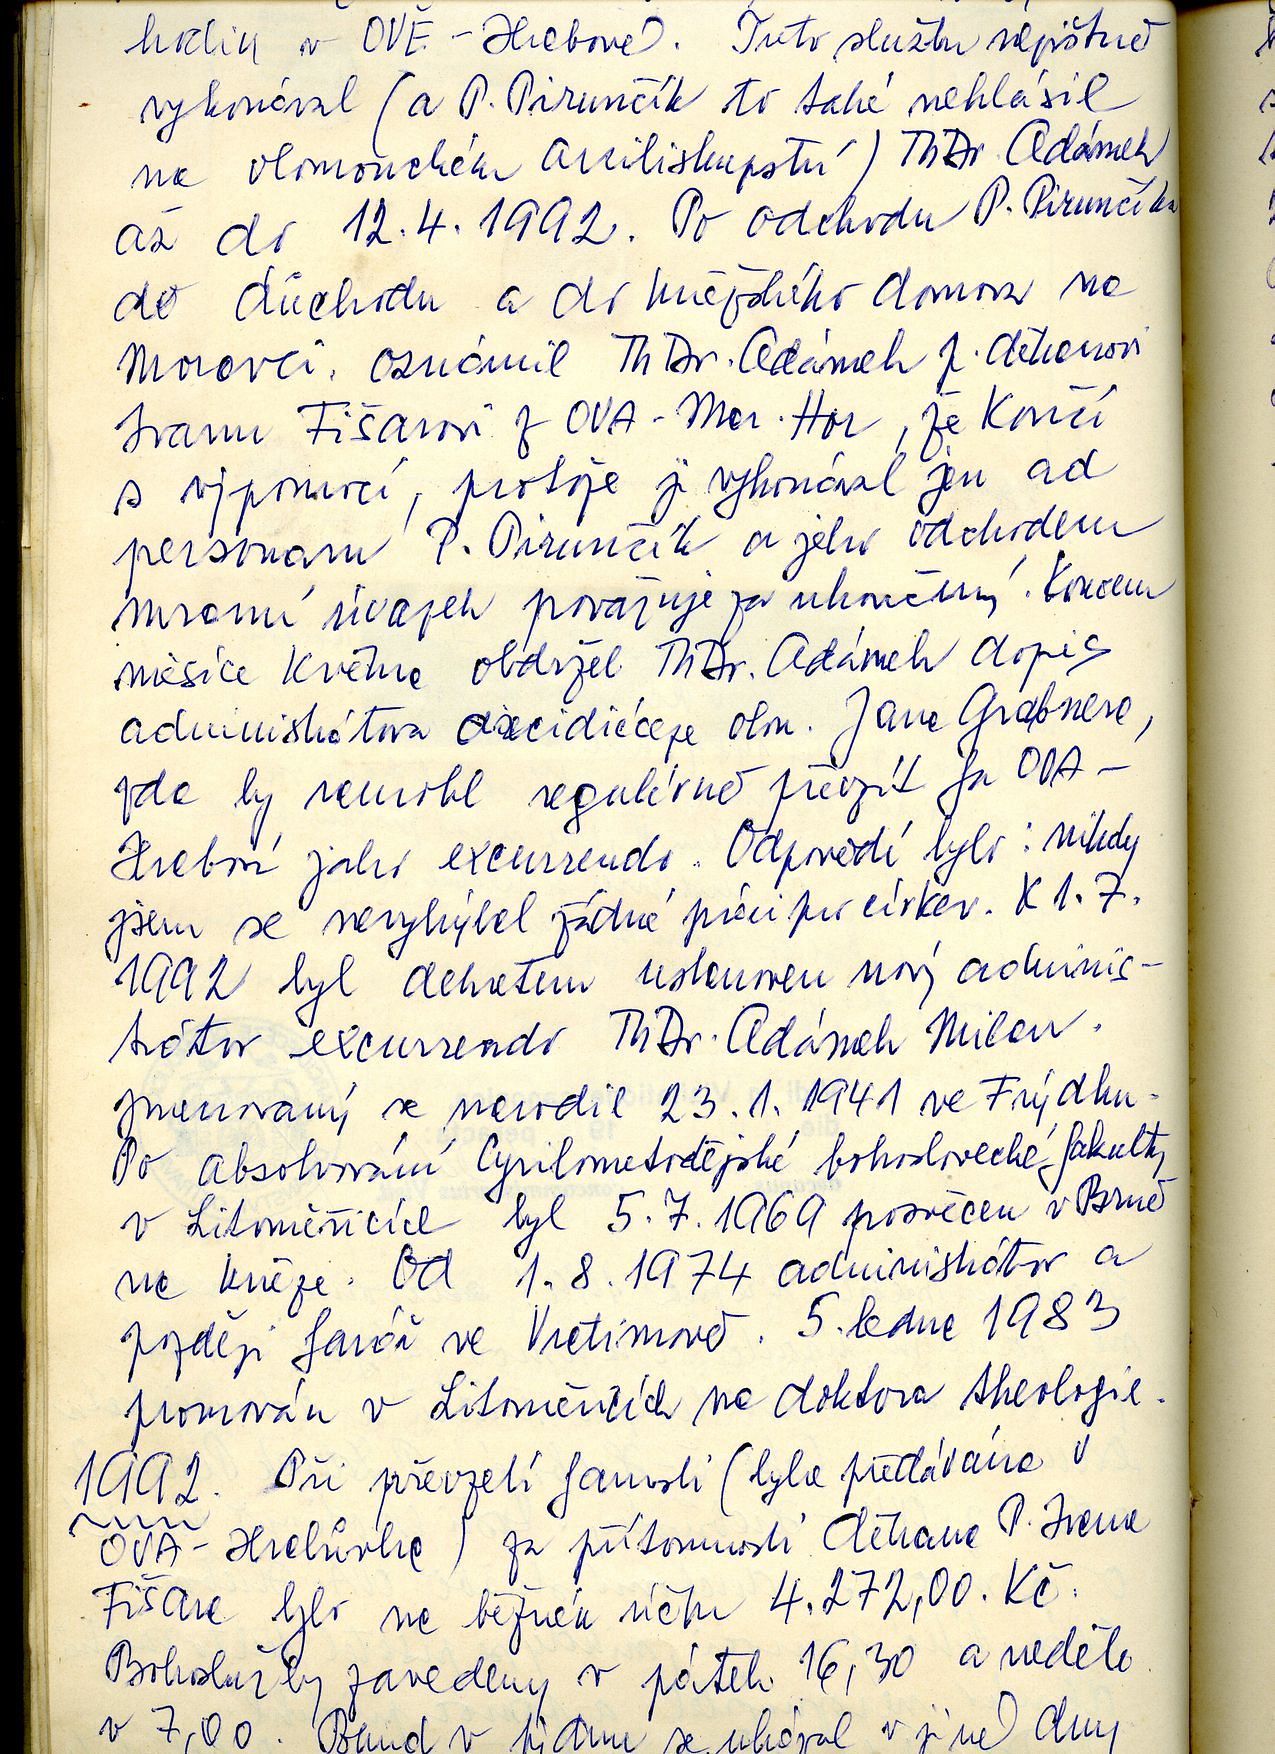 hodin v OVĚ - Hrabové. Tuto službu nejištně
vykonával (a P. Pirunčík to také nehlásil
na olomouckém arcibiskupství) ThDr. Adámek
až do 12.4.1992. Po odchodu P. Pirunčíka
do důchodu a do kněžského domova na
Moravci, oznámil ThDr. Adámek p. děkanovi
Ivanu Fišarovi z OVA - Mar. Hor, že končí
s výpomocí, protože ji vykonával jen ad
personam P. Pirunčík a jeho odchodem
morální úvazek považuje za ukončený. Koncem
měsíce května obdržel ThDr. Adámek dopis
administrátora arcidiecéze olom. Jana Grabnera,
zda by nemohl regulérně převzít fu OVA -
Hrabová jako excurrendo. Odpovědí bylo: nikdy
jsem se nevyhýbal žádné práci pro církev. K 1.7.
1992 byl dekretem ustanoven nový adminis-
trátor excurrendo ThDr. Adámek Milan.
Jmenovaný se narodil 23.1.1941 ve Frýdku.
Po absolvování Cyrilometodějské bohoslovecké fakulty
v Litoměřicích byl 5.7.1969 posvěcen v Brně
na kněze. Od 1.8.1974 administrátor a
později farář ve Vratimově. 5. ledna 1983
promován v Litoměřicích na doktora theologie.
1992. Při převzetí farnosti (byla předávána v
OVA - Hrabůvka) za přítomnosti děkana P. Ivana
Fišara bylo na běžném účtu 4.272,00. Kč.
Bohoslužby zavedeny v pátek 16,30 a neděle
v 7,00. Pokud v týdnu se ukázal v jiné dny